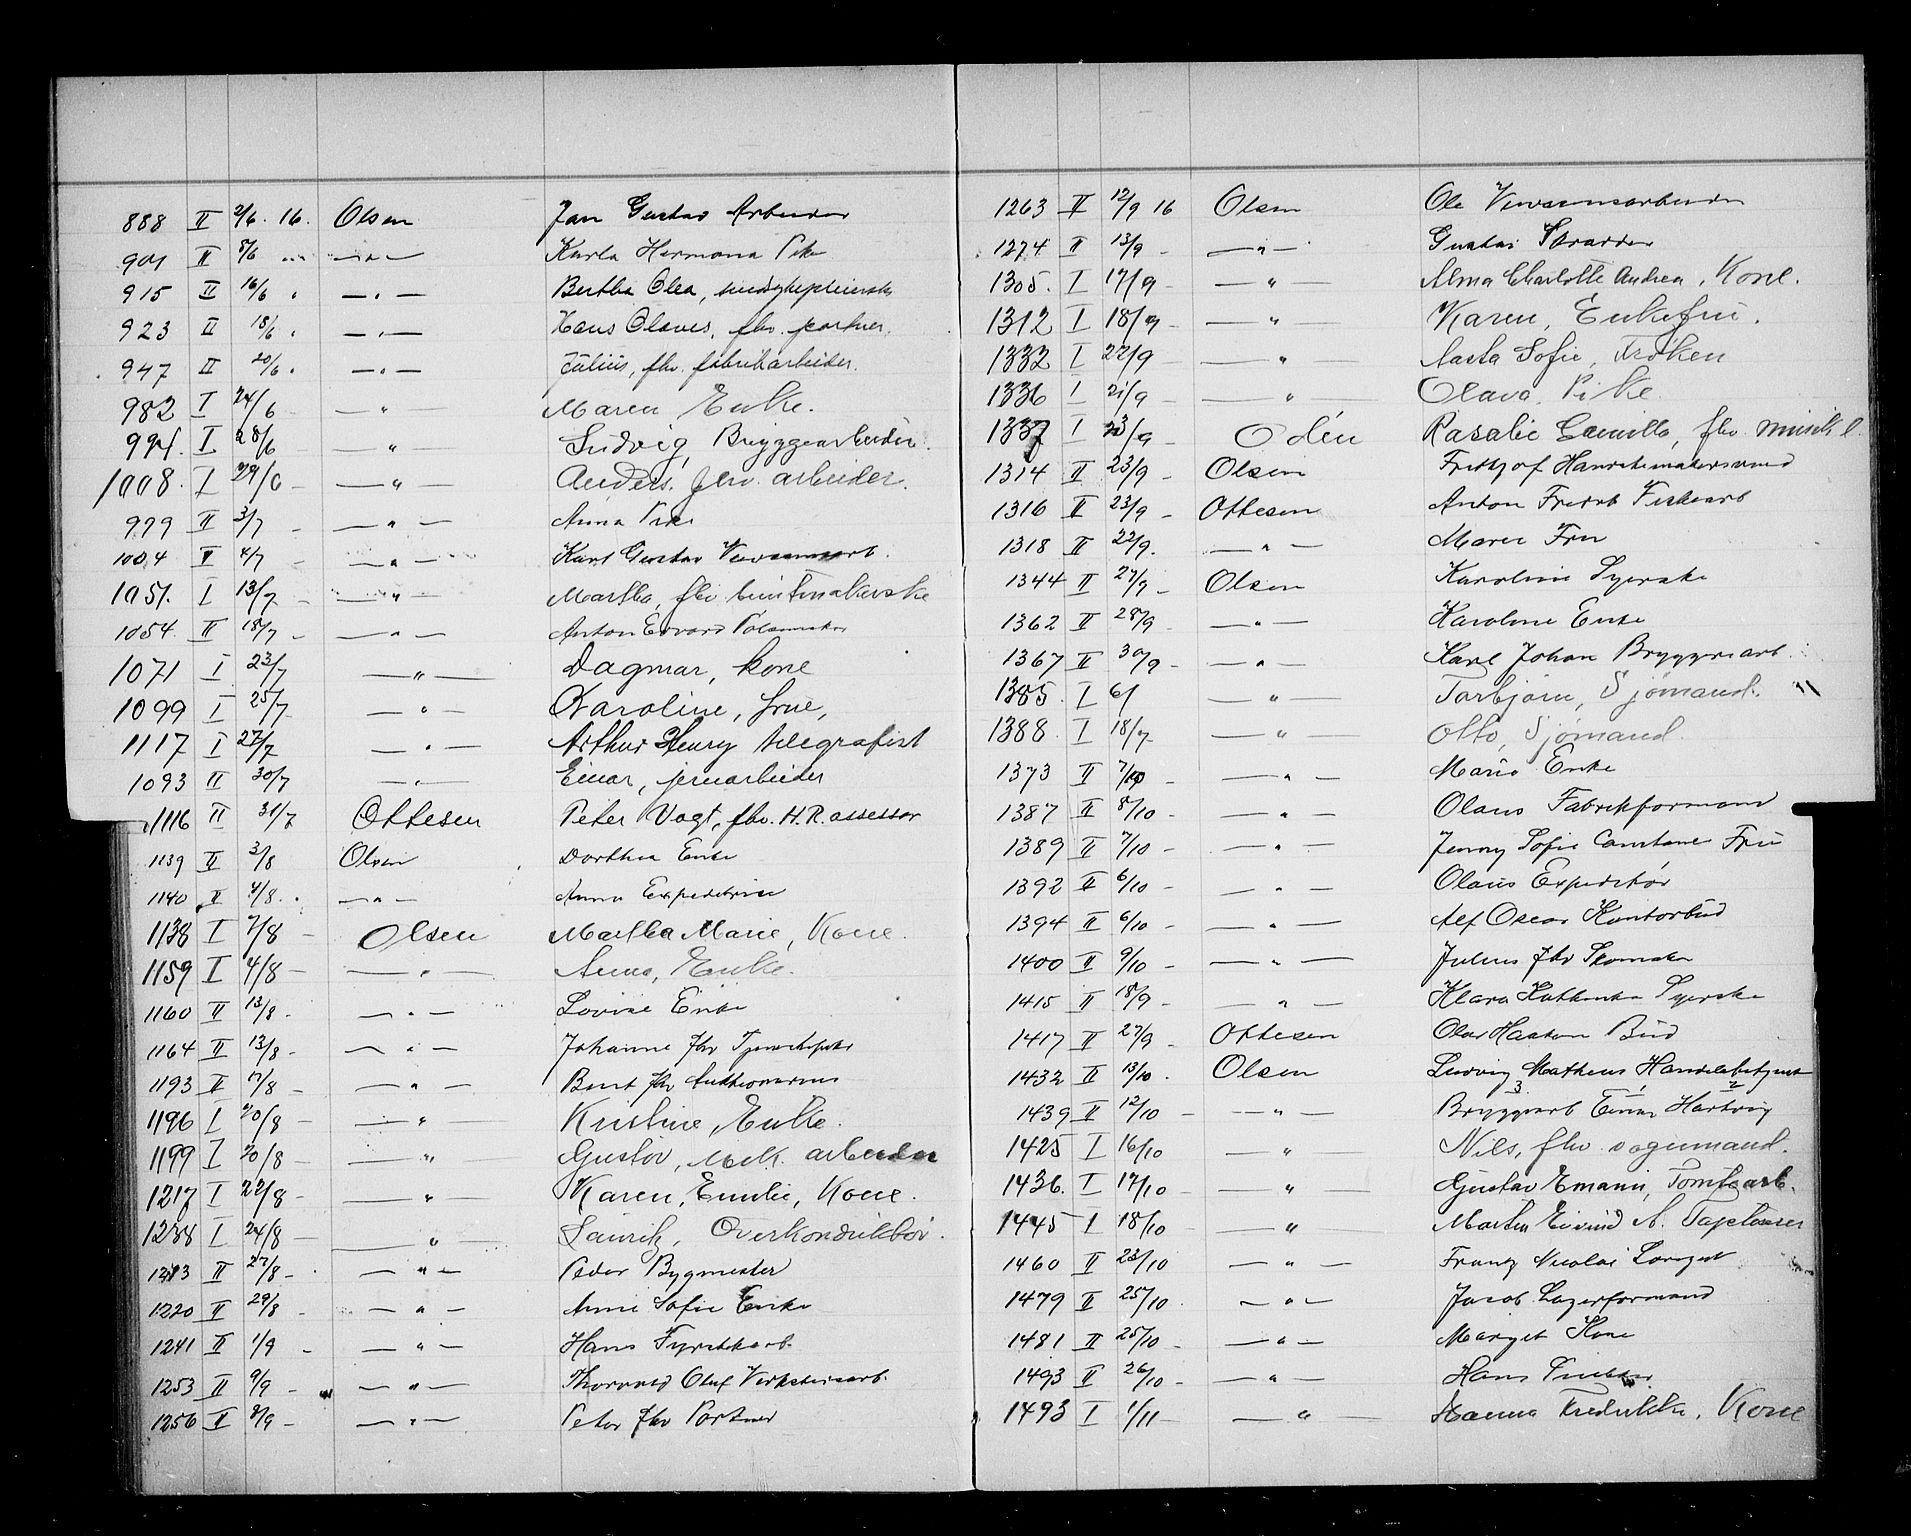 888 II 2/6. 16. Olsen Jan Gustav Arbeider
901 II 8/6 " — " — Karla Hermana Pike
915 II 16/6 " — " — Bertha Olea, sindsykepleierske
923 II 18/6 " — " — Hans Olaves, fhv. portner.
947 II 20/6 " — " — Julius, fhv. fabrikarbeider.
982 I 24/6 — " Maren Enke.
994. I 28/6 " Ludvig, Bryggearbeider.
1008. I 29/6 — — " — Anders, fhv. arbeider.
979 II 3/7 — — " — Anna Pike
1004 II 4/7 — — " — Karl Gustav Verksmarb.
1051. I 13/7 — — " — Martha, fhv buntmakerske
1054. II 18/7 — — " — Anton Edvard Pølsemaker
1071 I 23/7 — " — Dagmar, kone
1099 I 25/7 — " — Karoline, frue,
1117 I 27/7 — " — Arthur Henry telegrafist
1093 II 30/7 — " — Einar, jernarbeider
1116 II 31/7 Ottesen Peter Vogt, fhv. H.R. assessor
1139 II 3/8 Olsen Dorthea Enke
1140 II 4/8. — " — Anna Expeditrise
1138 I 7/8 — Olsen Martha Marie, Kone.
1159 I 4/8 — — " — Anna, Enke.
1160 II 13/8 — — " — Lovise Enke
1164 II 13/8 — — " — Johanne fhv
1193 II 17/8 — — " — Bent fhv
1196 I 20/8 — — " Kristine, Enke.
1199 I 20/8 — — " — Gustav, Mek. arbeider
1217 I 22/8 — — " — Karen, Emilie, Kone.
1288 I 24/8 — — " — Lauritz, Overkonduktør.
1213 II 27/8 — — " — Peder Bygmester
1220 II 29/8 — " — Anne Sofie Enke
1241 II 1/9 — — " — Hans Fyrstikarb.
1253 II 9/9 — — " — Thorvald Oluf Verkstedsarb.
1256 II 8/9 — — " — Peter fhv Portner
1263 II 12/9 16 Olsen Ole
1274 II 13/9 — — " — Gustav Skrædder
1305. I 17/9 — — " Alma Charlotte Andrea, Kone.
1312 I 18/9 — — " Karen, Enkefru.
1332 I 22/9 — — " — Aasta Sofie, Frøken
1336 I 21/9 — — " — Olava, Pike.
1337 I 23/9 — Odén Rosalie Camilla, fhv. musikl.
1314 II 23/9 — Olsen Fritjof Hanskemakersvend
1316 II 23/9 — Ottesen Anton Fredrik
1318 II 22/9. — " — Maren Fru
1344 II 27/9 — Olsen Karoline Syerske
1362 II 28/9 — " — Karoline Enke
1367 II 30/9 — — " — Karl Johan Bryggeriarb
1385. I 6/ — " — Torbjørn, Sjømand.
1388. I 18/7 — " — Otto, Sjømand.
1373 II 7/10 — " — Marie Enke
1387 II 8/10 — — " — Olaus Fabrikformand
1389 II 7/10 — — " — Jenny Sofie Constance Fru
1392 II 6/10 — — " — Olaus Expeditør
1394 II 6/10 — — " — Alf Oscar Kontorbud
1400 II 9/10 — — " — Julius fhv Skomaker
1415 II 18/9 — — " — Klara Kathinka Syerske
1417 II 27/9 — Ottesen Olav Haakon Bud
1432 II 13/10. Olsen Ludvig Matheus Handelsbetjent
1439 II 12/10 — — " — Bryggearb 3 Einar 1 Hartvig 2
1425 I 16/10 — " Nils, fhv. vognmand.
1436. I 17/10 — — " — Gustav Emanuel, Tomtearb.
1445 I 18/10 — — " — Morten Eivind A. Tapetserer
1460 II 23/10 — " — Frantz Nicolai
1479 II 25/10. — " — Jacob Lagerformand
1481 II 25/10 — — " — Margit Kone
1493 II 26/10 — — " — Hans
1493 I 1/11 — — " — Hanna Fredrikke, Kone